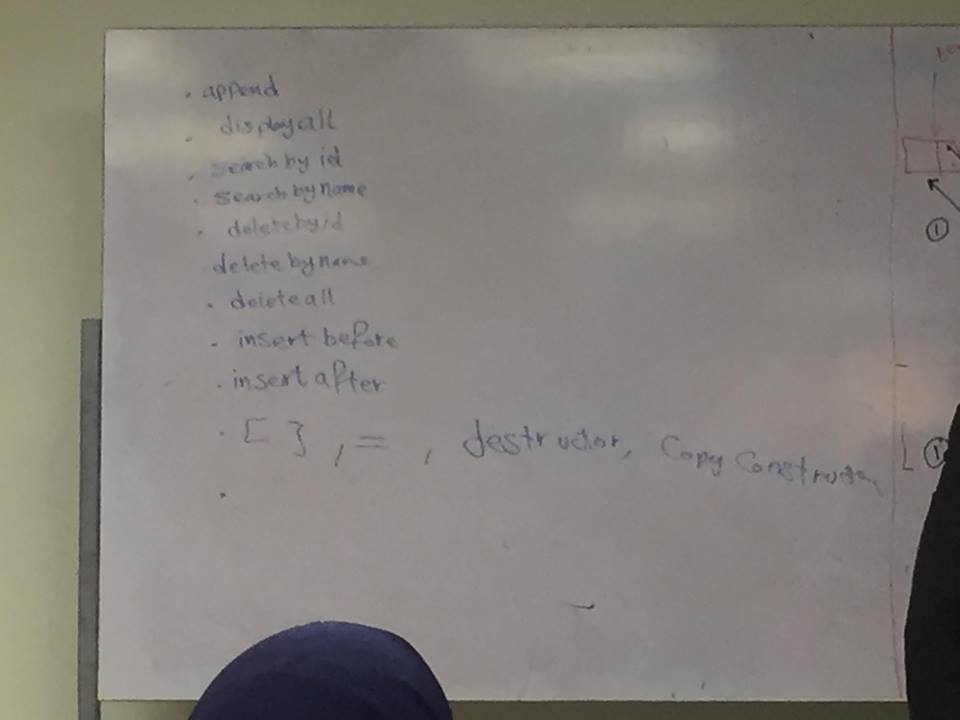 . append
. displayall
. search by id
. search by Name
. delete by id
delete by name
. delete all
. insert before
. insert after
. [ ] , = , destructor, Copy Constructor
.
①
①